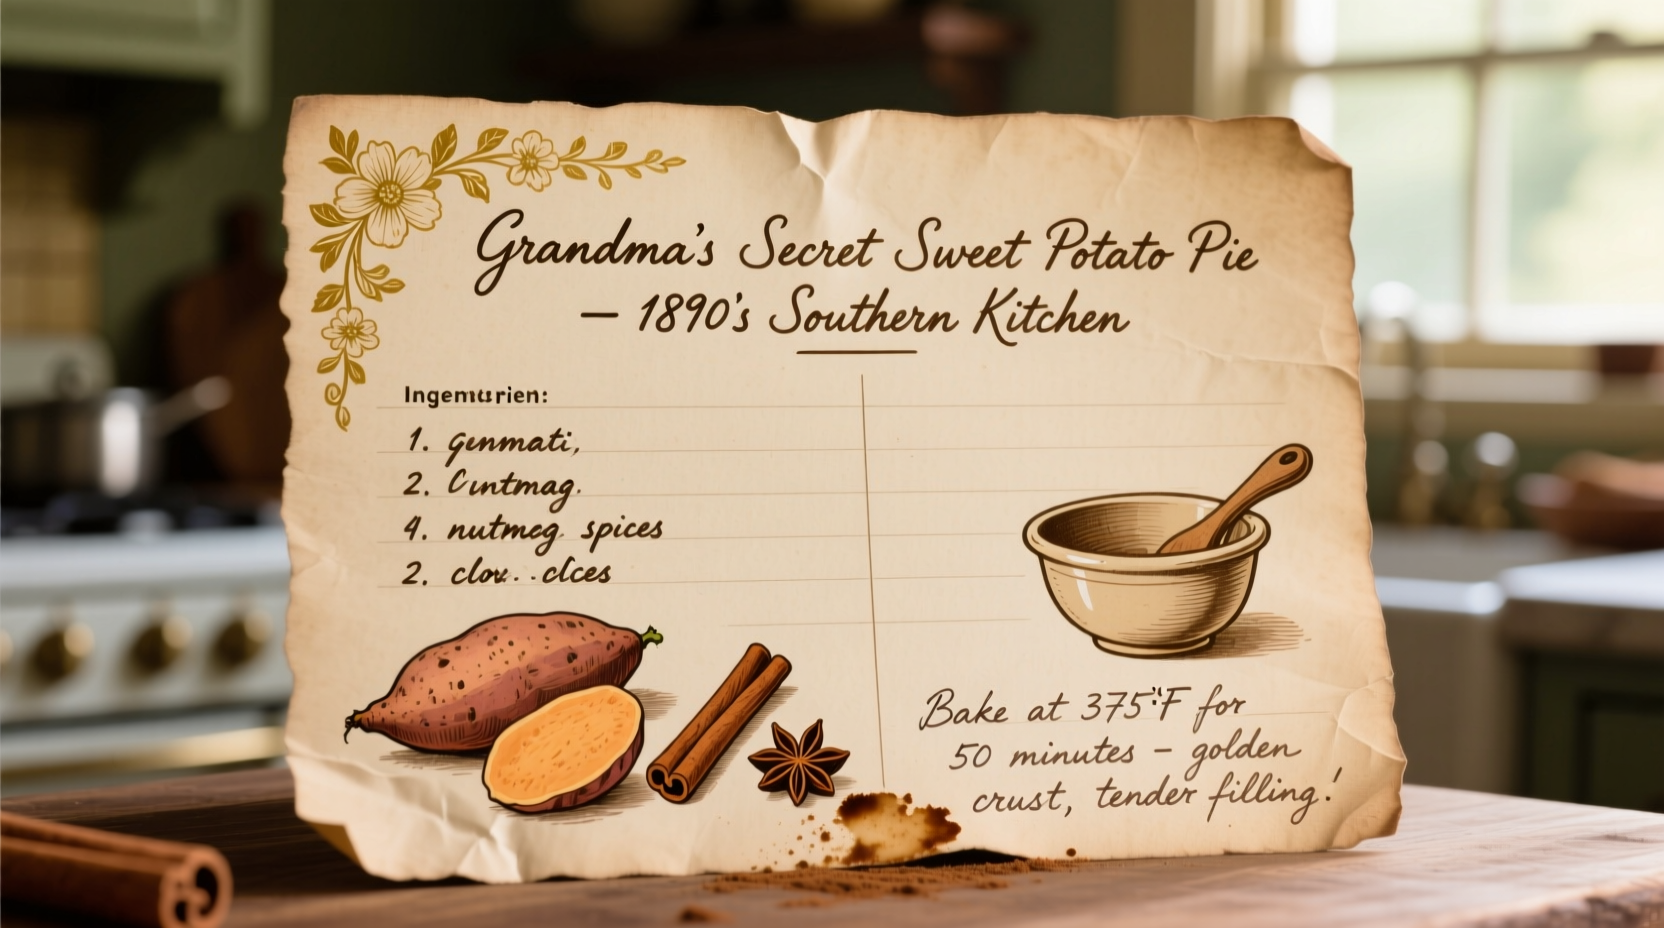 Grandma's Secret Sweet Potato Pie
— 1890's Southern Kitchen
Ingemurien:
1. genmati,
2. Cuntmag.
4. nutmeg. spices
2.
Bake at 375°F for
50 minutes – golden
crust, tender filling!